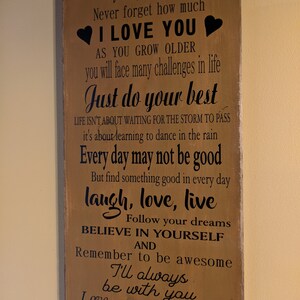 Never forget how much
I LOVE YOU
AS YOU GROW OLDER
you will face many challenges in life
Just do your best
LIFE ISN'T ABOUT WAITING FOR THE STORM TO PASS
it's about learning to dance in the rain
Every day may not be good
But find something good in every day
laugh, love, live
Follow your dreams
BELIEVE IN YOURSELF
AND
Remember to be awesome
I'll always
be with you